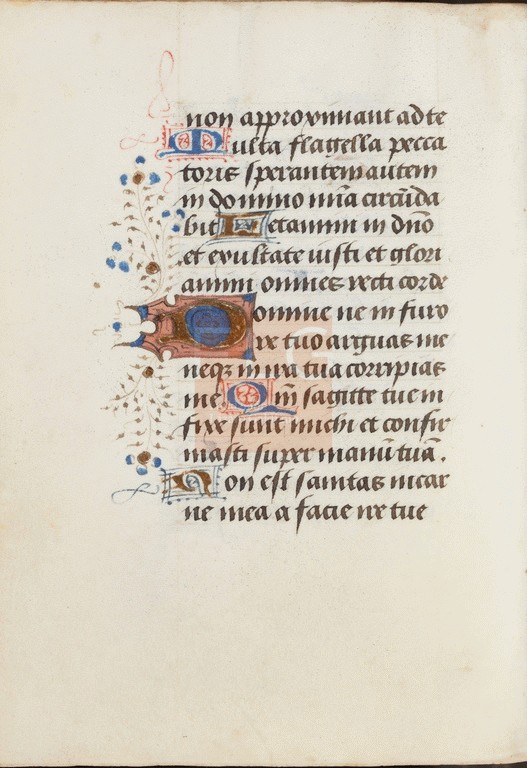 non approximant ad te
Multa flagella pecca
toris sperantem autem
in domino mia circūda
bit Letamini in dno
et exultate iusti et glori
amini omnes recti corde
Domine ne in furo
re tuo arguas me
neqz in ira tua corripias
me Qm̄ sagitte tue in
fixe sunt michi et confir
masti super me manū tuā.
Non est sanitas in car
ne mea a facie ire tue